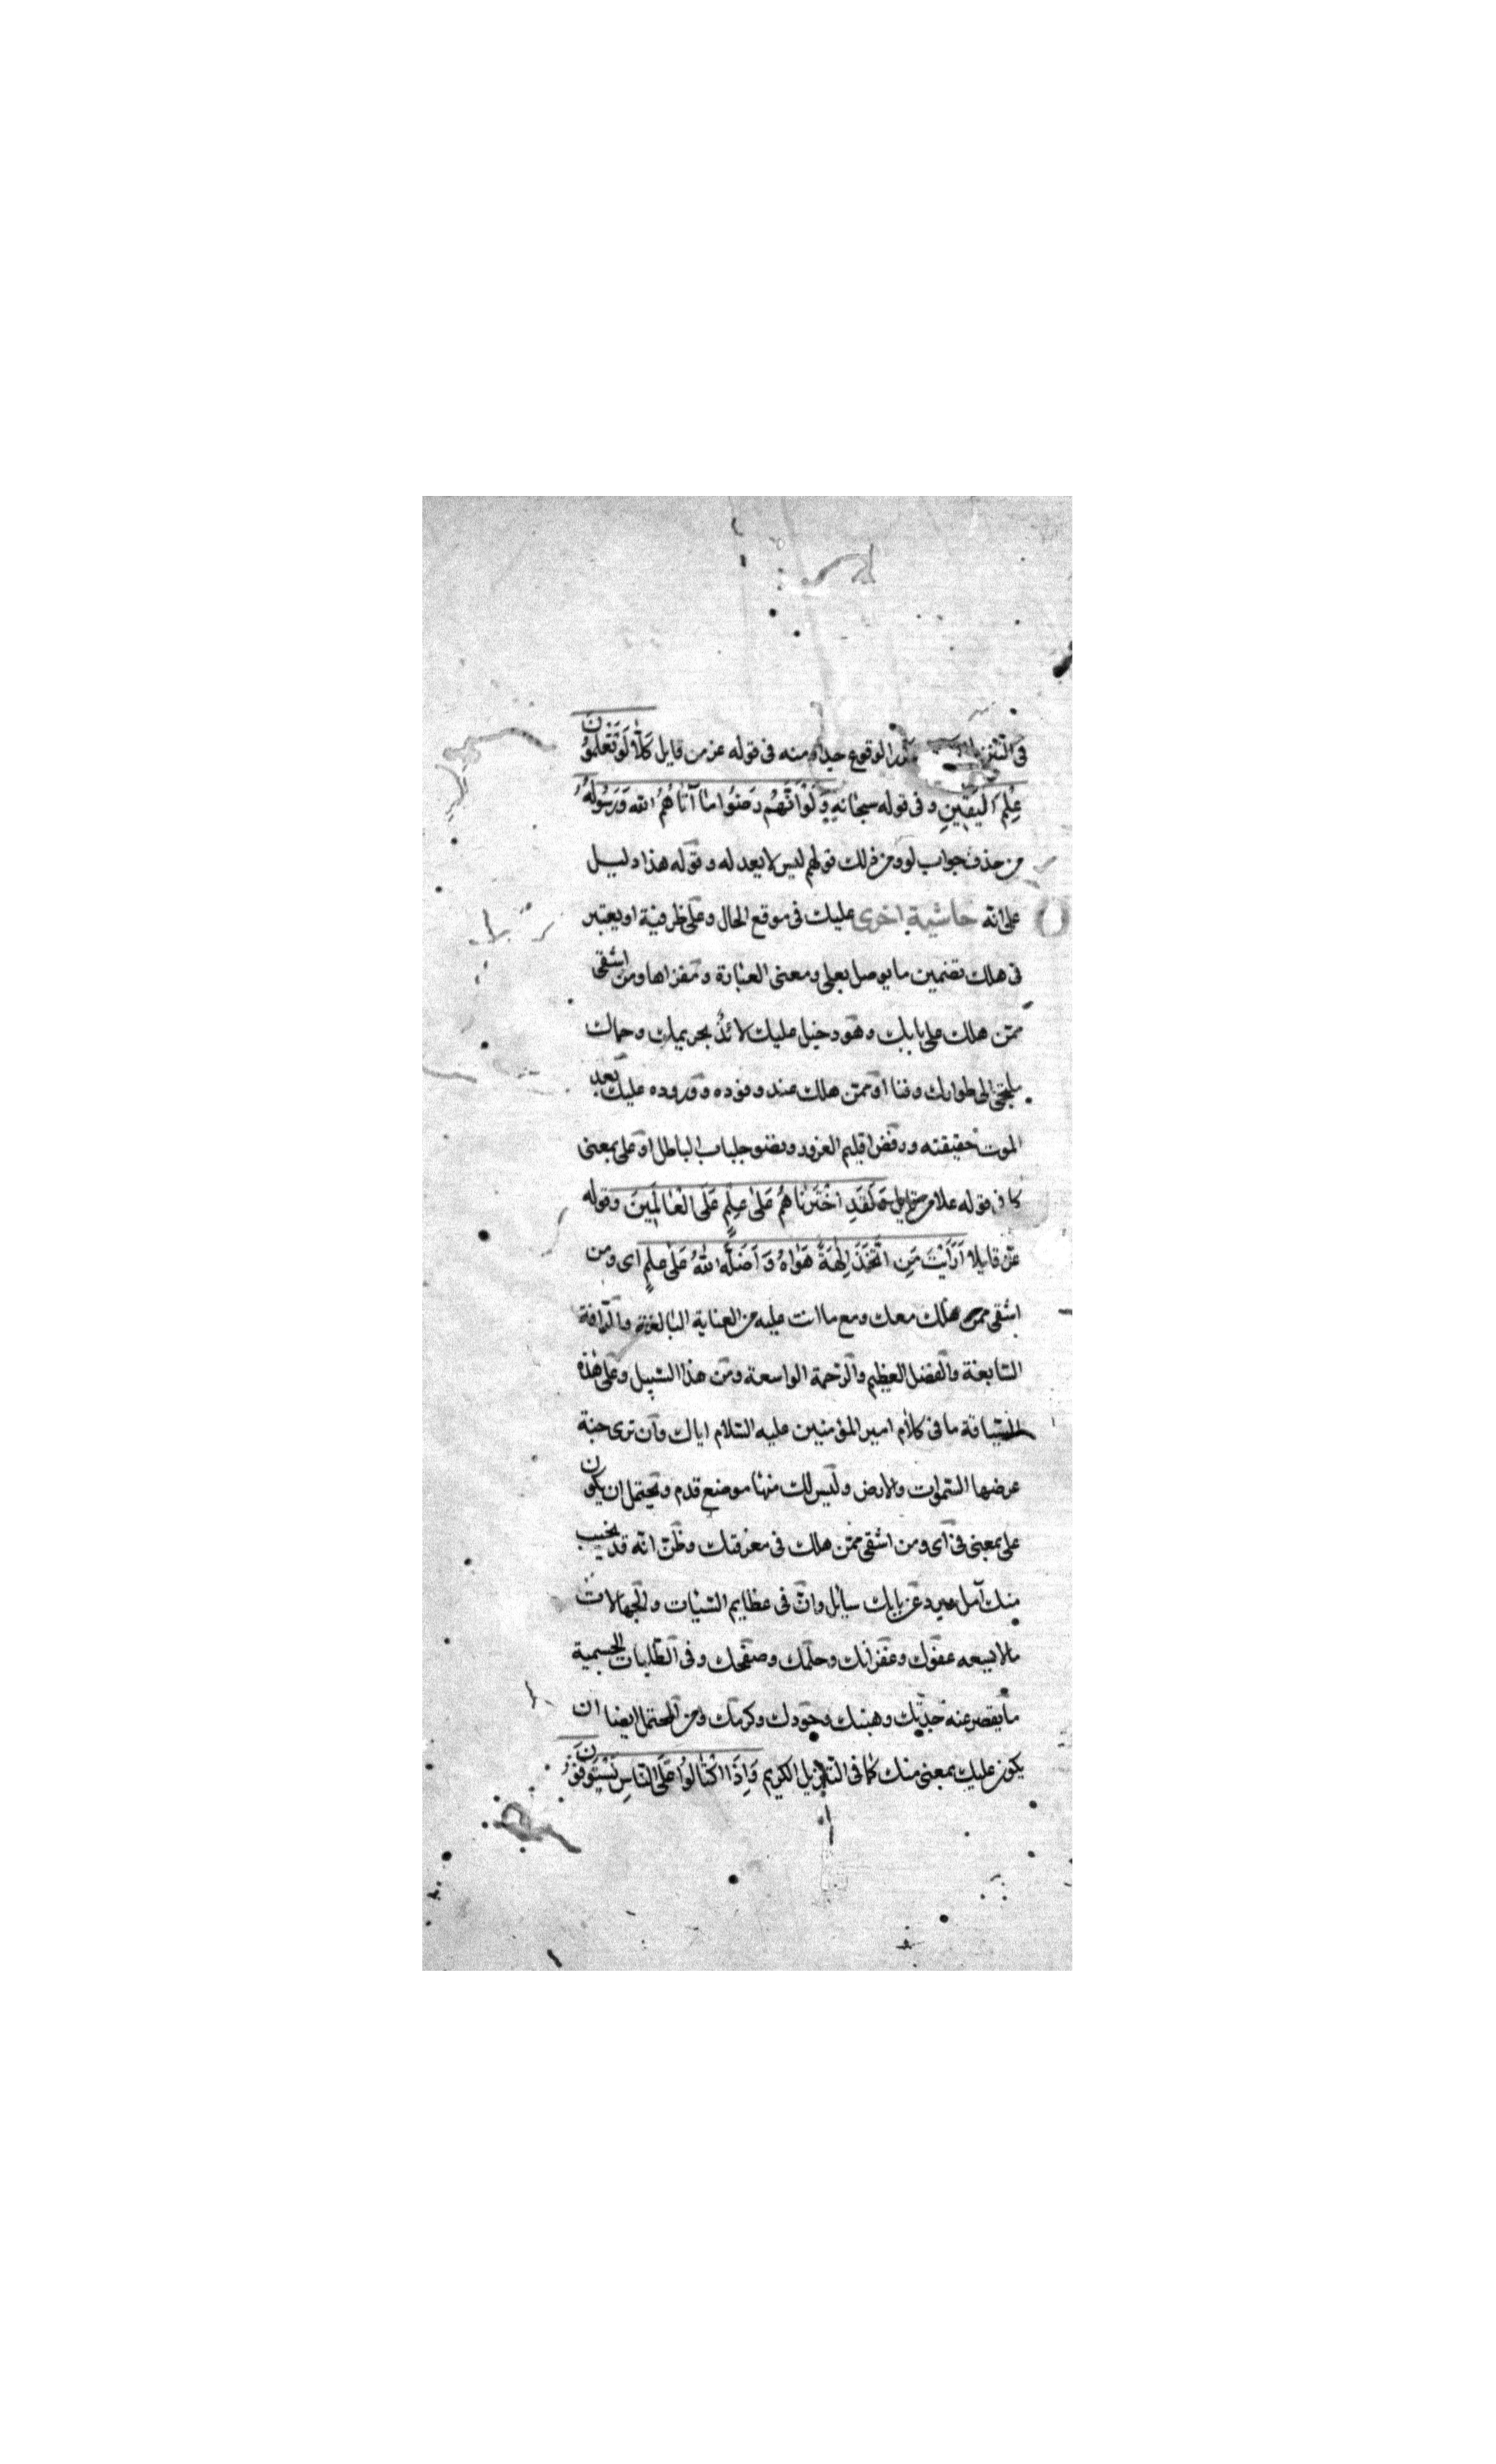 في التنزيل الوقوع جدا ومنه في قوله عز من قايل كَلّا لَوْ تَعْلَمُونَ
عِلْمَ اليَقِينِ وفي قوله سبحانه وَلَوْ اَنَّهُمْ رَضُوا مٰا آتٰاهُمُ الله وَرَسُولُهُ
من حذف جواب لو ومن ذلك قولهم ليس لا يعدله وقوله هذا دليل
على انه حاشية اخرى عليك في موقع الحال وعلى ظرفية او يعتبر
في هلك تضمين ما يوصل بعلى ومعنى العبارة ومغزاها ومن اشقى
ممن هلك على بابك وهو دخيل عليك لائذ بحريمك وحماك
ملتجئ الى طوارك وفنا او ممن هلك عند وفوده ووروده عليك بعد
الموت حقيقته ورفض اقليم الغرور ونضو جلباب الباطل او على بمعنى
كما في قوله علا من قايل لَقَدِ اخْتَرْنٰاهُمْ عَلىٰ عِلْمٍ عَلَى الْعٰالَمِينَ وقوله
عز قايلا اَرَاَيْتَ مَنِ اتَّخَذَ اِلٰهَهُ هَوٰاهُ وَاَضَلَّهُ اللهُ عَلىٰ عِلمٍ اى ومن
اشقى ممن هلك معك ومع ما انت عليه من العناية البالغة والرافة
السابغة والفضل العظيم والرحمة الواسعة ومن هذا السبيل وعلى هذه
السياقة ما في كلام امير المؤمنين عليه السلام اياك وان ترى جنة
عرضها السموات والارض وليس لك منها موضع قدم ويحتمل ان يكون
على بمعنى في اى ومن اشقى ممن هلك في معرفتك وظن انه قد يخيب
منك آمل ويرد عن بابك سايل وان في عظايم السيئات والجهالات
ما لا يسعه عفوك وغفرانك وحلمك وصفحك وفي الطلبات الجسيمة
ما يقصر عنه جديتك وهبتك وجودك وكرمك ومن المحتمل ايضا ان
يكون عليك بمعنى منك كما في التنزيل الكريم وَاِذَا اكْتٰالُوا عَلَى النّاسِ يَسْتَوْفُونَ